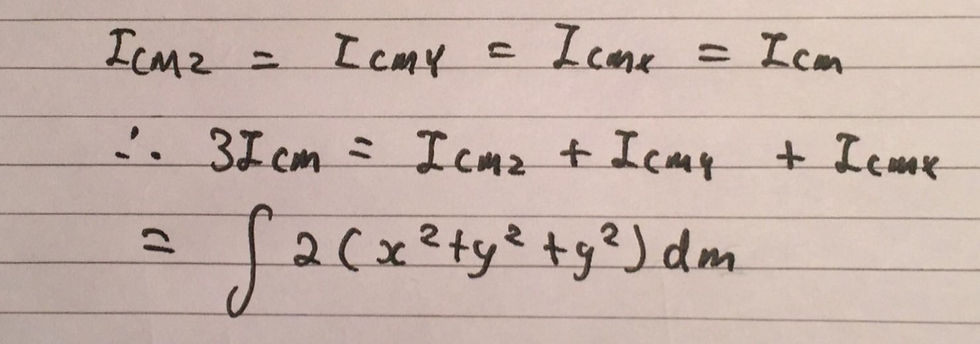 I_CMZ = I_CMY = I_CMX = I_CM
∴ 3I_CM = I_CMZ + I_CMY + I_CMX
= ∫ 2(x²+y²+y²)dm